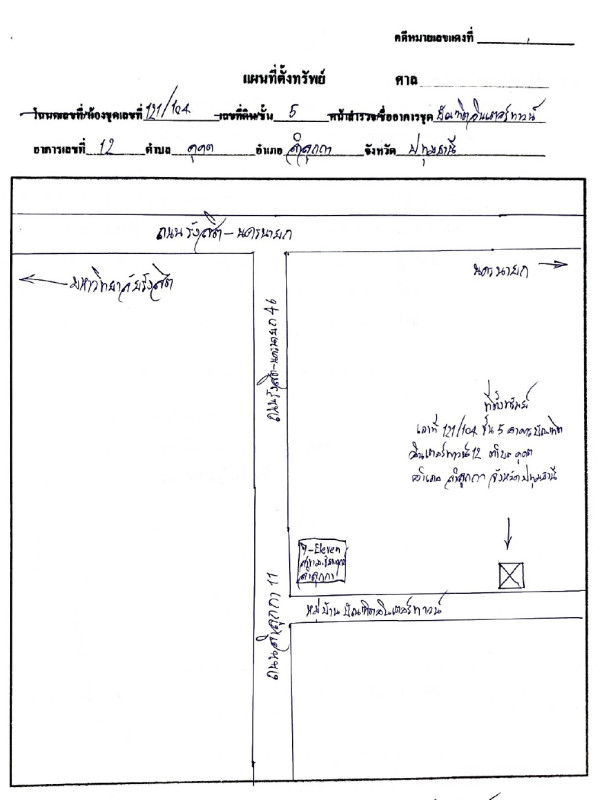 คดีหมายเลขแดงที่
แผนที่ตั้งทรัพย์ ศาล
โฉนดเลขที่/ห้องชุดเลขที่ 121/104 เลขที่ดิน/ชั้น 5 หน้าสำรวจ/ชื่ออาคารชุด บัณฑิตอินเตอร์ทาวน์
อาคารเลขที่ 12 ตำบล คูคต อำเภอ ลำลูกกา จังหวัด ปทุมธานี
ถนนรังสิต-นครนายก
มหาวิทยาลัยรังสิต
นครนายก
ถนนรังสิต-นครนายก 46
ที่ตั้งทรัพย์
เลขที่ 121/104 ชั้น 5 อาคารบัณฑิต
อินเตอร์ทาวน์ 12 ตำบล คูคต
อำเภอ ลำลูกกา จังหวัดปทุมธานี
7-Eleven
ลำลูกกา
หมู่บ้านบัณฑิตอินเตอร์ทาวน์
ถนนลำลูกกา 11